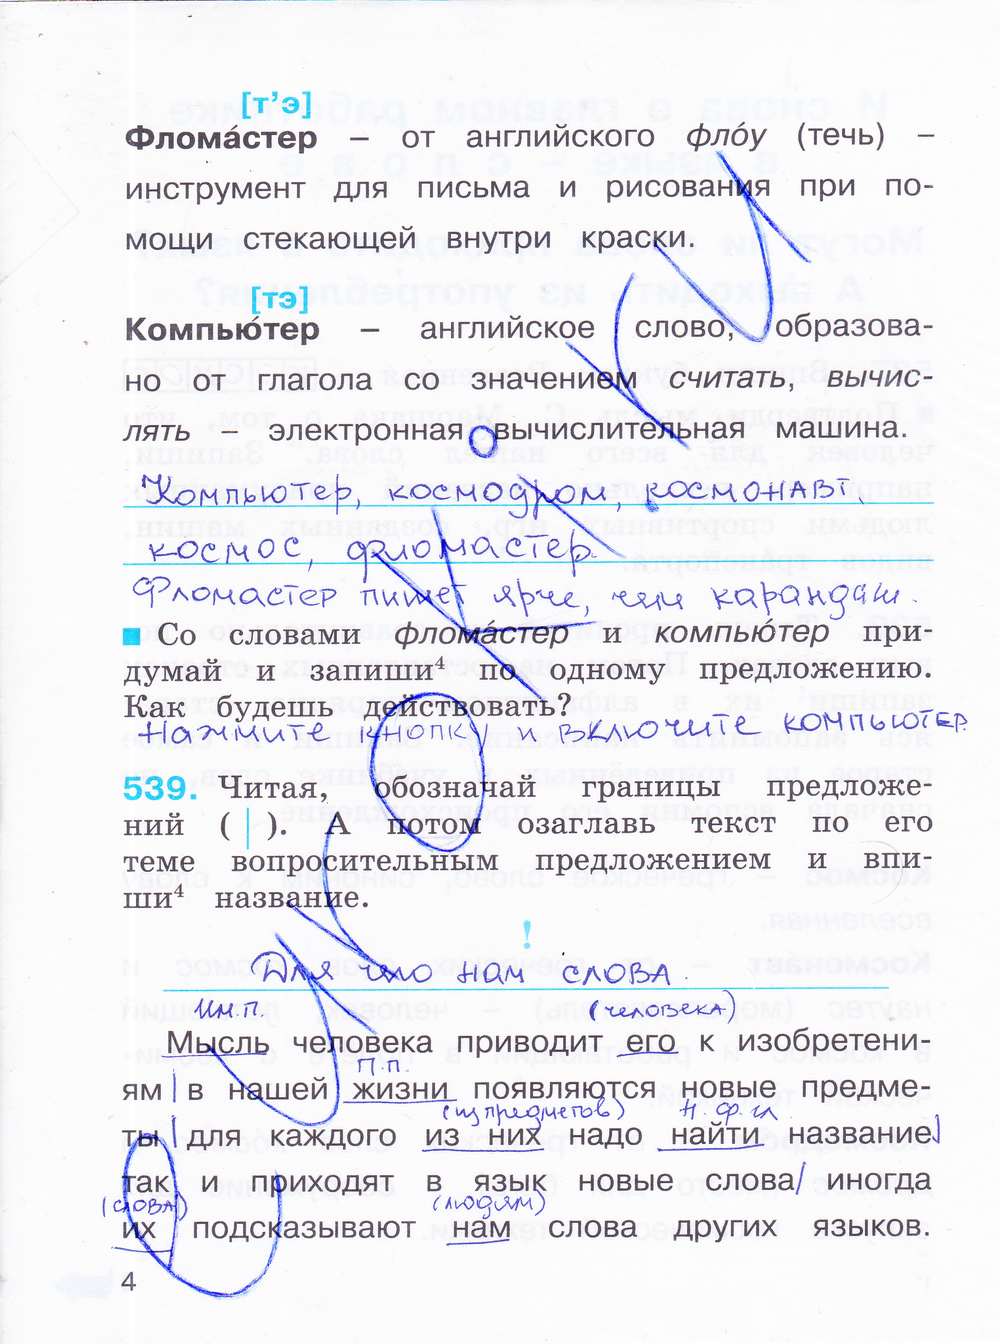 [т’э]
Флома́стер – от английского фло́у (течь) –
инструмент для письма и рисования при по-
мощи стекающей внутри краски.
[тэ]
Компью́тер – английское слово, образова-
но от глагола со значением считать, вычис-
лять – электронная вычислительная машина.
Компьютер, космодром, космонавт,
космос, фломастер.
Фломастер пишет ярче, чем карандаш.
Со словами флома́стер и компью́тер при-
думай и запиши⁴ по одному предложению.
Как будешь действовать?
Нажмите кнопку и включите компьютер.
539. Читая, обозначай границы предложе-
ний ( | ). А потом озаглавь текст по его
теме вопросительным предложением и впи-
ши⁴ название.
!
Для чего нам слова.
Им.п. (человека)
Мысль человека приводит его к изобретени-
П.п.
ям | в нашей жизни появляются новые предме-
(из предметов) н.ф.гл
ты | для каждого из них надо найти название |
так и приходят в язык новые слова / иногда
(слова) (людям)
их подсказывают нам слова других языков.
4